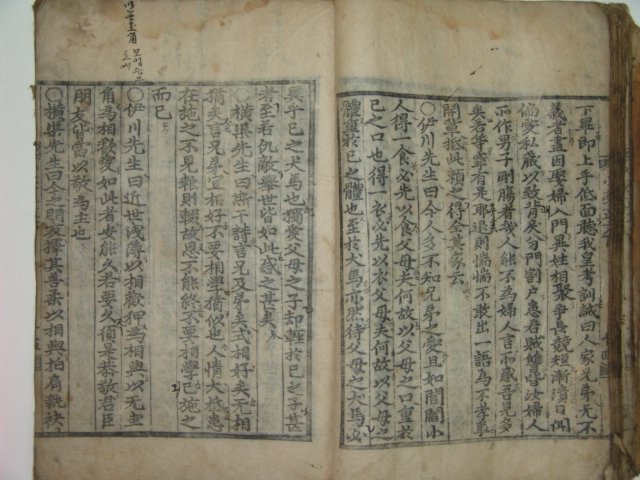 下畢即上手低面聽我皇考訓誡曰人家兄弟无不
義者盡因娶婦入門異姓相聚爭長競短漸漬日聞
偏愛私藏以致背戾分門割戶患若賊讎皆汝婦人
所作男子剛腸者幾人能不為婦人言所惑吾見多
矣若等寧有是耶退則惴惴不敢出一語為不孝事
開輩抵此賴之得全其家云
○伊川先生曰今人多不知兄弟之愛且如閭閻小
人得一食必先以食父母夫何故以父母之口重於
己之口也得一衣必先以衣父母夫何故以父母之
體重於己之體也至於犬馬亦然待父母之犬馬必
異乎己之犬馬也獨愛父母之子却輕於己之子甚
者至若仇敵舉世皆如此惑之甚矣
○橫渠先生曰斯干詩言兄及弟矣式相好矣无相
猶矣言兄弟宜相好不要相學猶似也人情大抵患
在施之不見報則輟故恩不能終不要相學己施之
而已
○伊川先生曰近世淺薄以相歡狎為相與以无圭
角為相歡愛如此者安能久若要久須是恭敬君臣
朋友皆當以敬為主也
○橫渠先生曰今之朋友擇其善柔以相與拍肩執袂